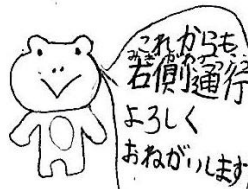 これからも、
右側通行
よろしく
おねがいします